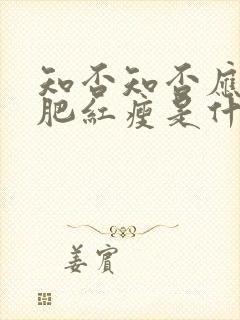 知否知否應
肥紅瘦是什
姜賓